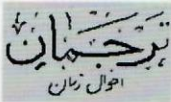 ترجمان
احوال زمان